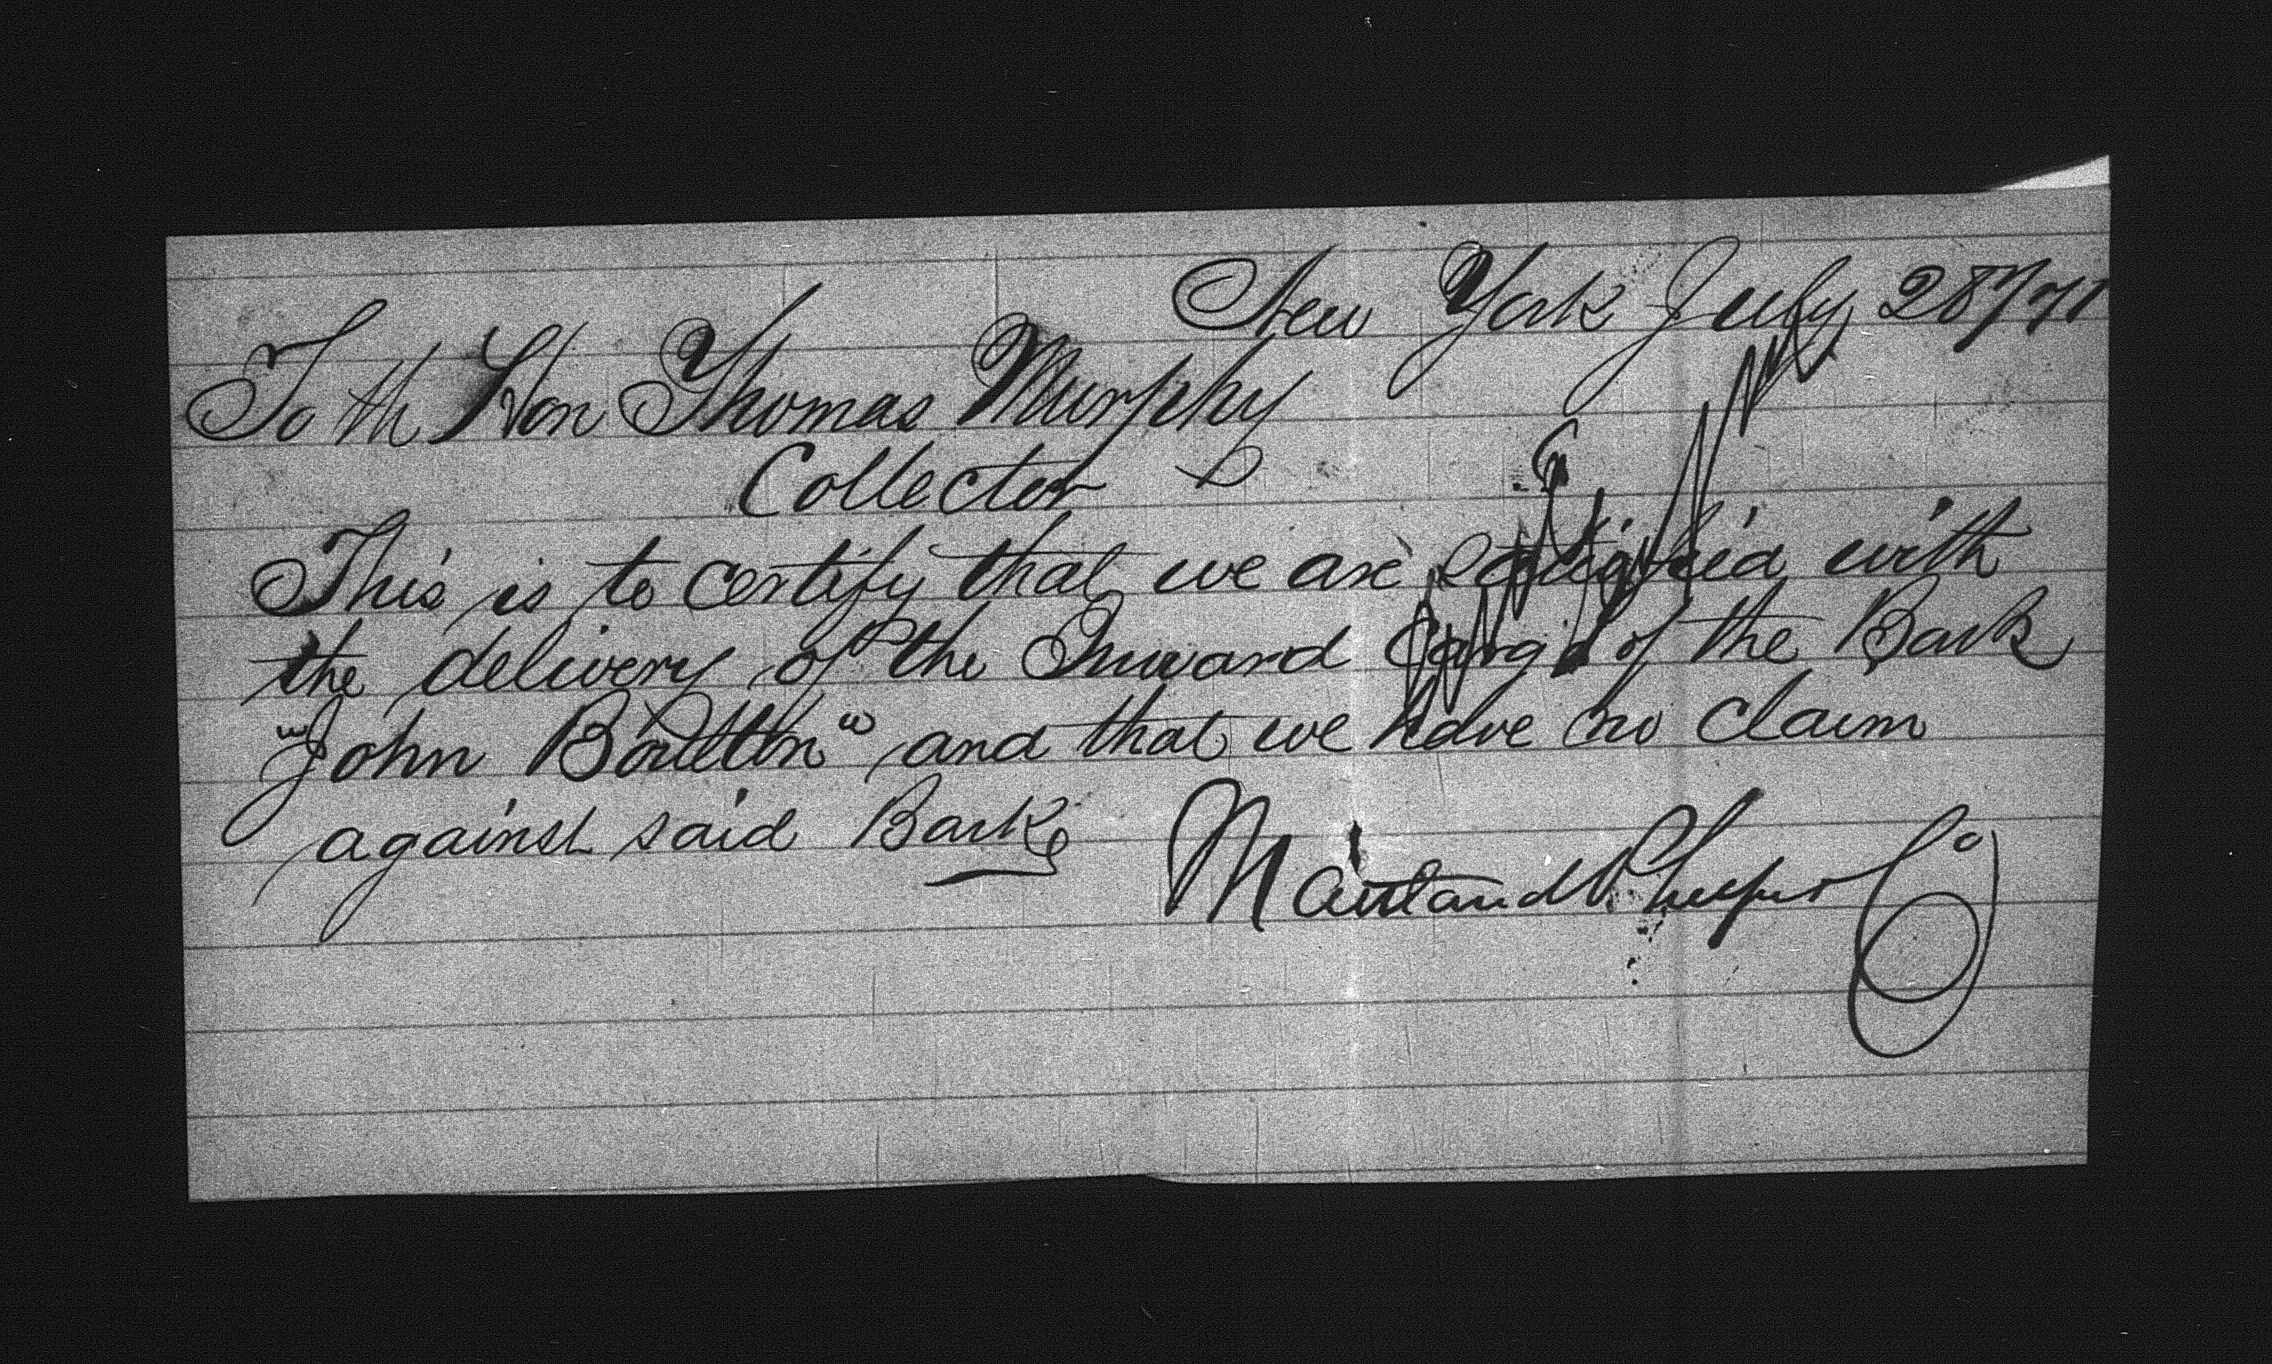 New York July 28/71
To th Hon Thomas Murphy
Collector
This is to certify that we are satisfied with
the delivery of the Inward Cargo of the Bark
"John Boulton" and that we have no claim
against said Bark
Maitland Phelps & Co